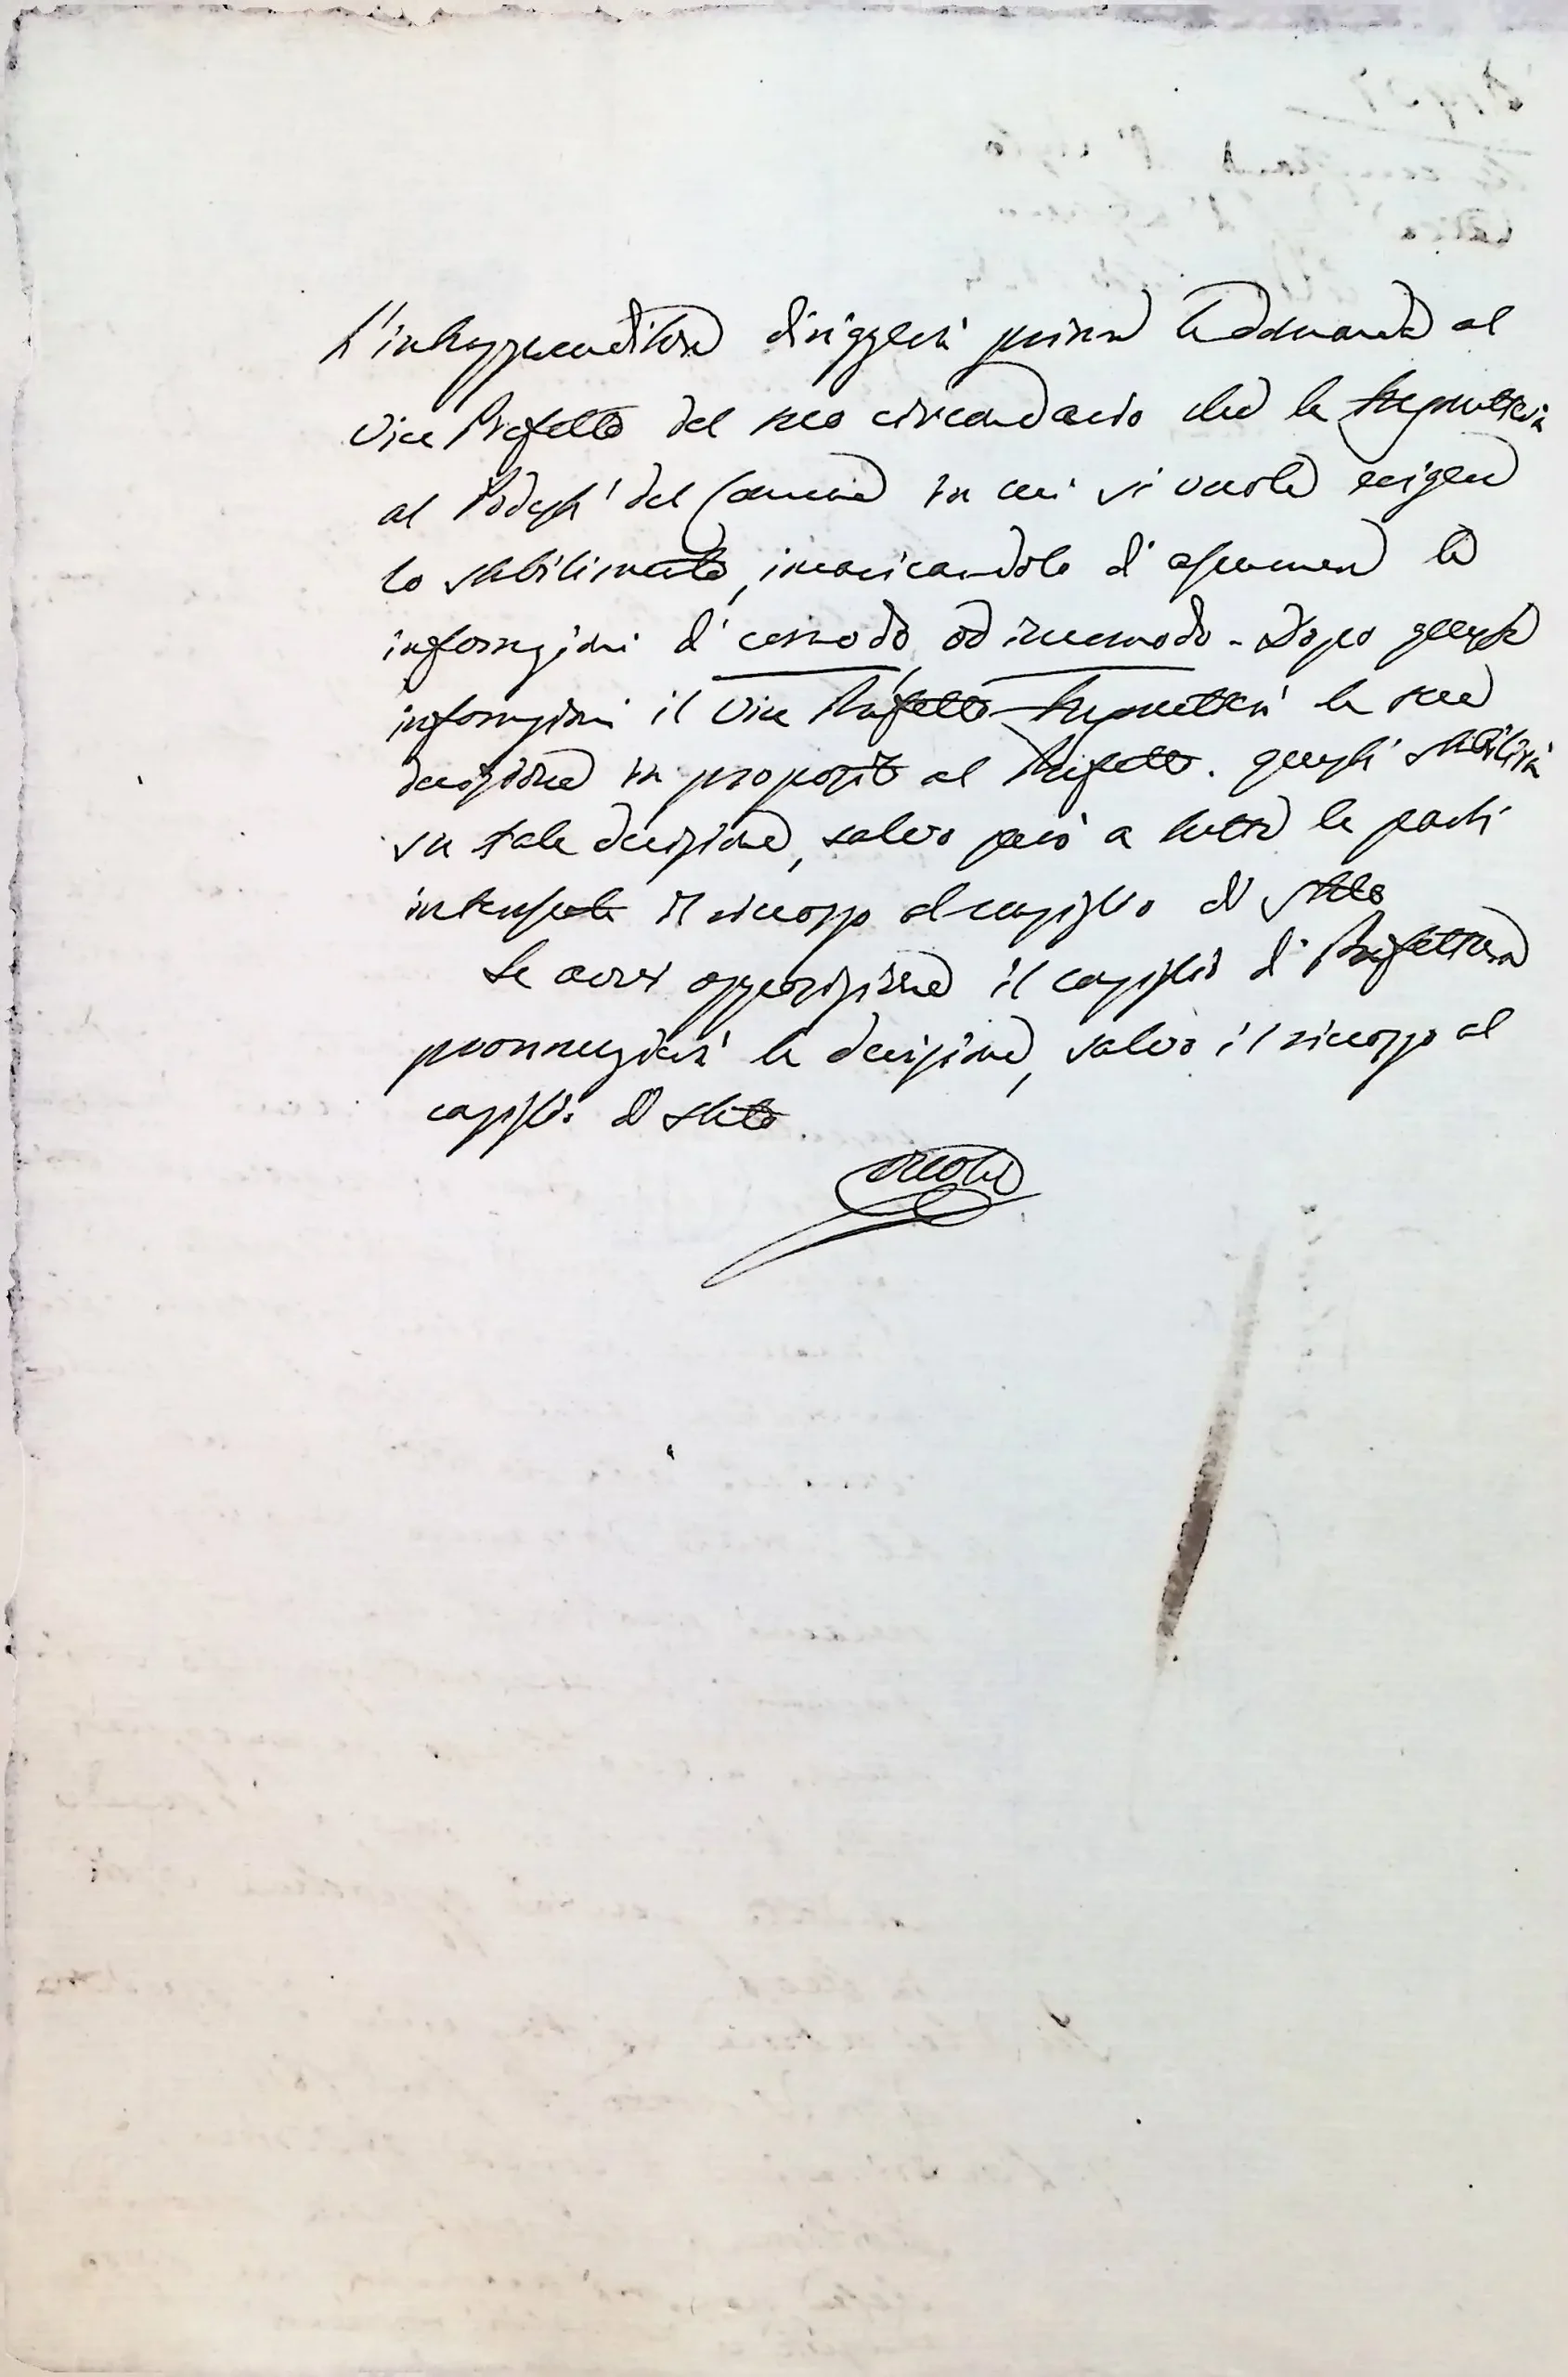 L'intrapprenditore diriggerà prima la domanda al
Vice Prefetto del suo circondario che la trasmetterà
al Podestà del Comune in cui si vuole erigere
lo stabilimento, incaricandolo d'assumere le
informazioni di comodo, od incomodo - Dopo queste
informazioni il Vice Prefetto trasmetterà la sua
decisione in proposito al Prefetto. questi stabilirà
su tale decisione, salvo però a tutte le parti
interessate il ricorso al consiglio di stato
Se avvi opposizione il consiglio di Prefettura
pronunzierà la decisione, salvo il ricorso al
consiglio di stato